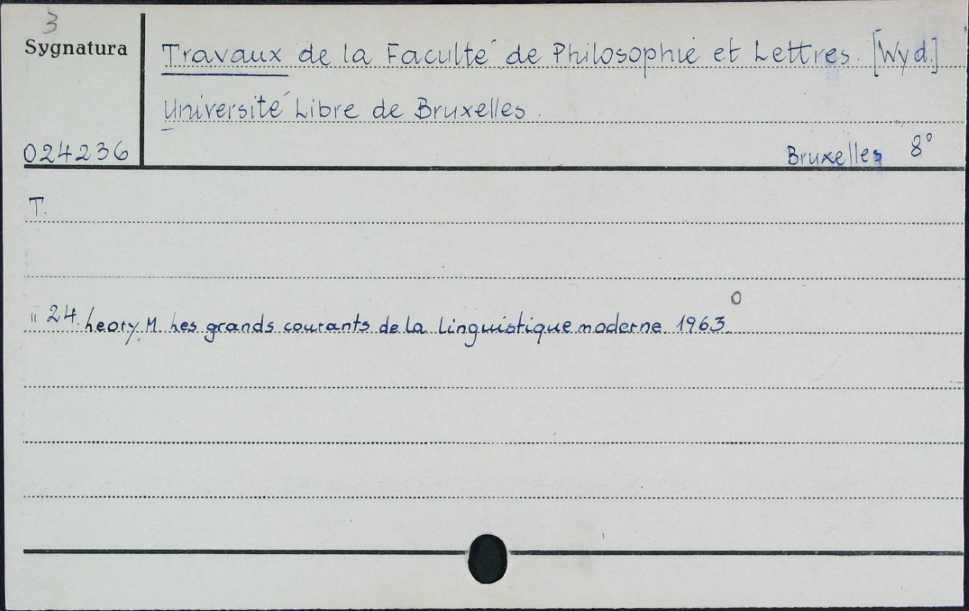 3
Sygnatura
Travaux de la Faculté de Philosophie et Lettres. [Wyd.]
Université Libre de Bruxelles.
024236
Bruxelles 8°
T.
" 24. Leory. M. Les grands courants de la linguistique moderne. 1963. O